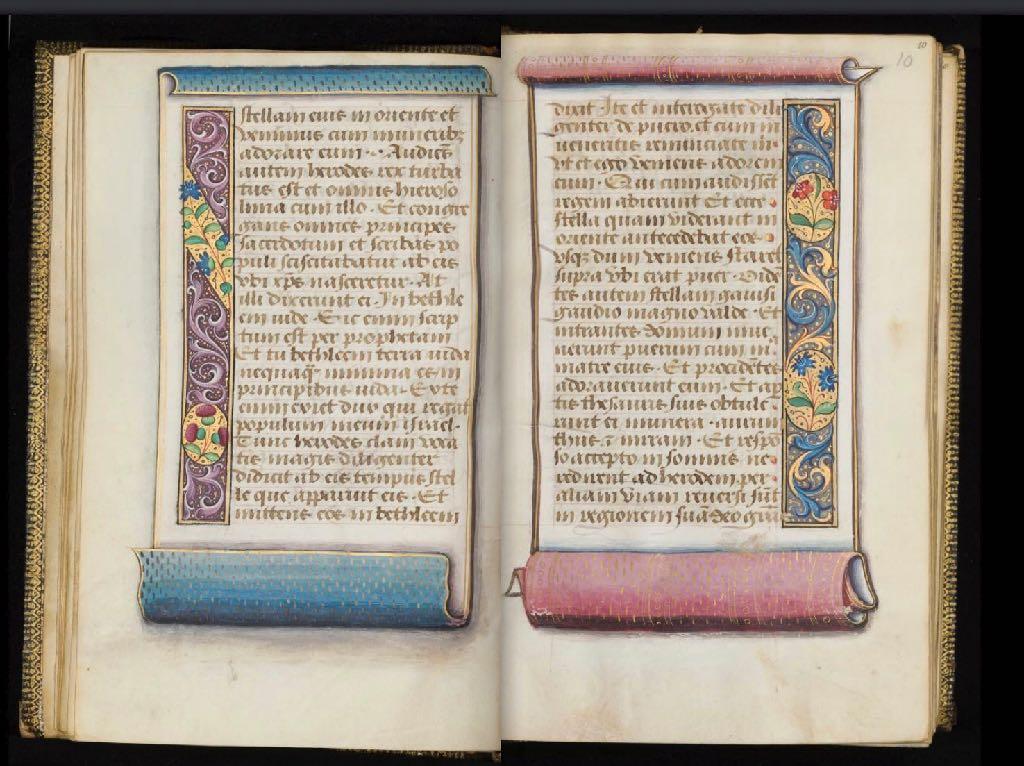 stellam eius in oriente et
venimus cum munerib3
adorare eum · Audiẽs
autem herodes rex turba
tus est et omnis hieroso
lima cum illo · Et congre
gans omnes principes
sacerdotum et scribas po
puli sciscitabatur ab eis
vbi xp̃s nasceretur · At
illi dixerunt ei · In bethle
em iude · Sic enim scrip
tum est per prophetam
Et tu bethleem terra iuda
nequaq̃ minima es in
principibus iuda · Ex te
enim exiet dux qui regat
populum meum israel ·
Tunc herodes clam voca
tis magis diligenter
didicit ab eis tempus stel
le que apparuit eis · Et
mittens eos in bethleem
10
10
dixit Ite et interogate dili
genter de puero · et cum in
ueneritis renunciate mi
vt et ego veniens adorem
eum · Qui cum audisset
regem abierunt Et ecce
stella quam viderant in
oriente antecedebat eos
vsq3 dum veniens staret
supra vbi erat puer · Vidẽ
tes autem stellam gauisi
gaudio magno valde · Et
intrantes domum inue
nerunt puerum cum ma
matre eius · Et procidẽtes
adorauerunt eum · Et ap
tis thesauris suis obtule
runt ei munera · aurum
thus z mirram · Et respõ
so accepto in somnis ne
redirent ad herodem per
aliam viam reuersi sũt
in regionem suã deo gr̃as